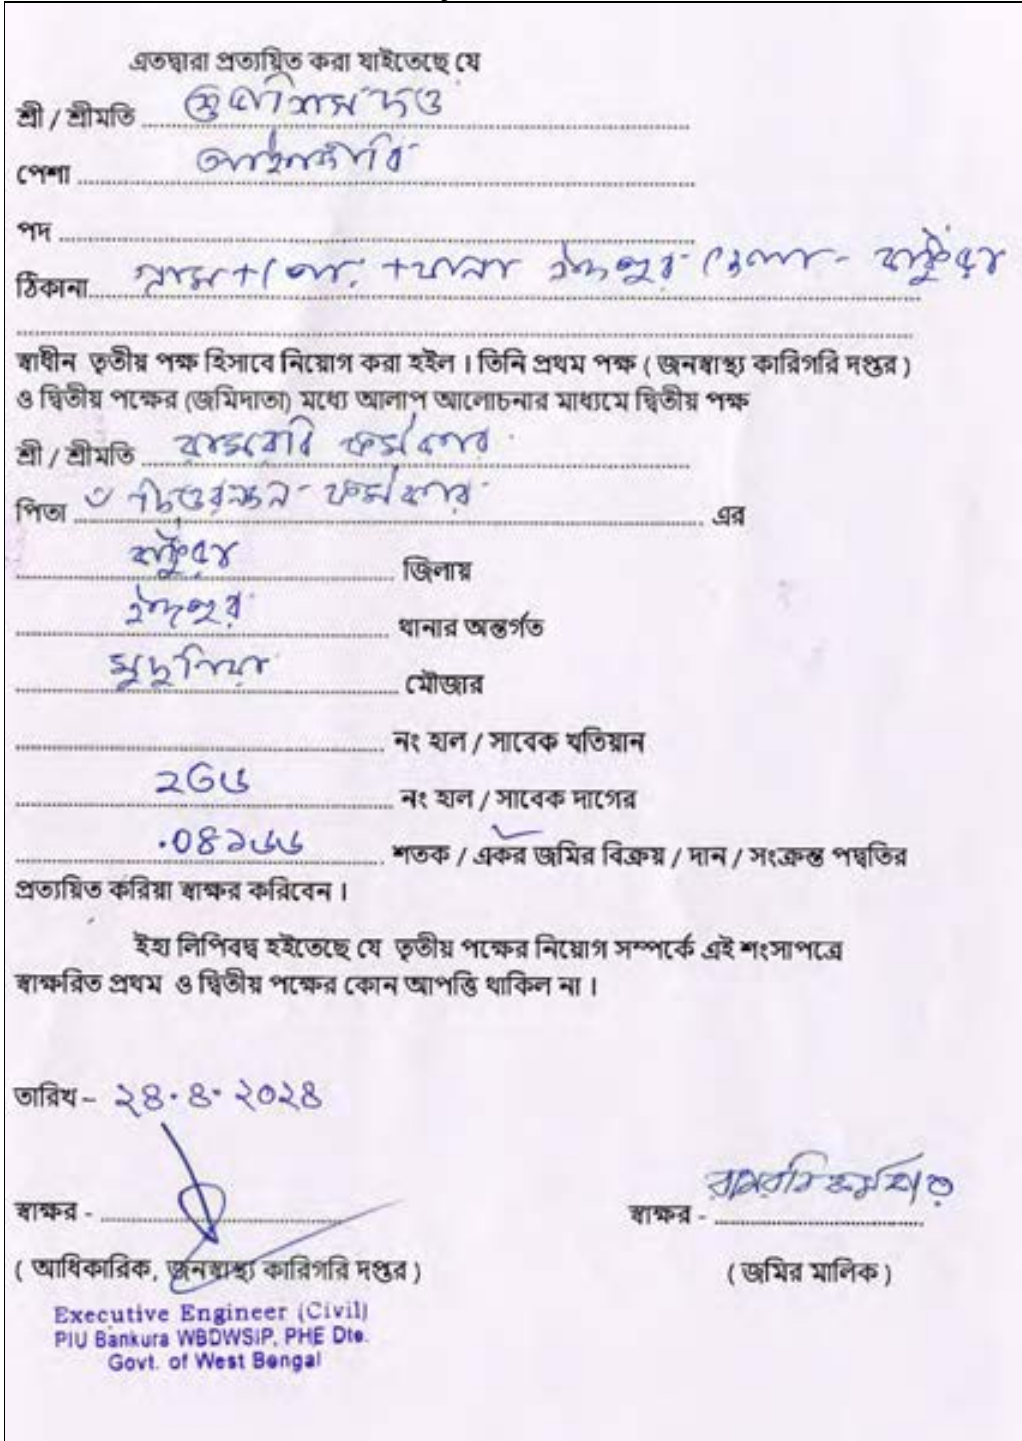 এতদ্বারা প্রত্যয়িত করা যাইতেছে যে
শ্রী / শ্রীমতি ........ দত্ত
পেশা ........ আইনজীবি
পদ ........
ঠিকানা........ গ্রাম+পোঃ+থানা ইন্দপুর জেলা - বাঁকুড়া
স্বাধীন তৃতীয় পক্ষ হিসাবে নিয়োগ করা হইল । তিনি প্রথম পক্ষ ( জনস্বাস্থ্য কারিগরি দপ্তর )
ও দ্বিতীয় পক্ষের (জমিদাতা) মধ্যে আলাপ আলোচনার মাধ্যমে দ্বিতীয় পক্ষ
শ্রী / শ্রীমতি ........ রামরবি কর্মকার
পিতা ........ চিত্তরঞ্জন কর্মকার ........ এর
বাঁকুড়া ........ জিলায়
ইন্দপুর ........ থানার অন্তর্গত
মুদুনিয়া ........ মৌজার
........ নং হাল / সাবেক খতিয়ান
২৬৬ ........ নং হাল / সাবেক দাগের
.০৪১৬৬ ........ শতক / একর জমির বিক্রয় / দান / সংক্রন্ত পদ্বতির
প্রত্যয়িত করিয়া স্বাক্ষর করিবেন ।
ইহা লিপিবদ্ব হইতেছে যে তৃতীয় পক্ষের নিয়োগ সম্পর্কে এই শংসাপত্রে
স্বাক্ষরিত প্রথম ও দ্বিতীয় পক্ষের কোন আপত্তি থাকিল না ।
তারিখ – ২৪.৪.২০২৪
রামরবি কর্মকার
স্বাক্ষর - ........ স্বাক্ষর - ........
( আধিকারিক, জনস্বাস্থ্য কারিগরি দপ্তর ) ( জমির মালিক )
Executive Engineer (Civil)
PIU Bankura WBDWSIP, PHE Dte.
Govt. of West Bengal